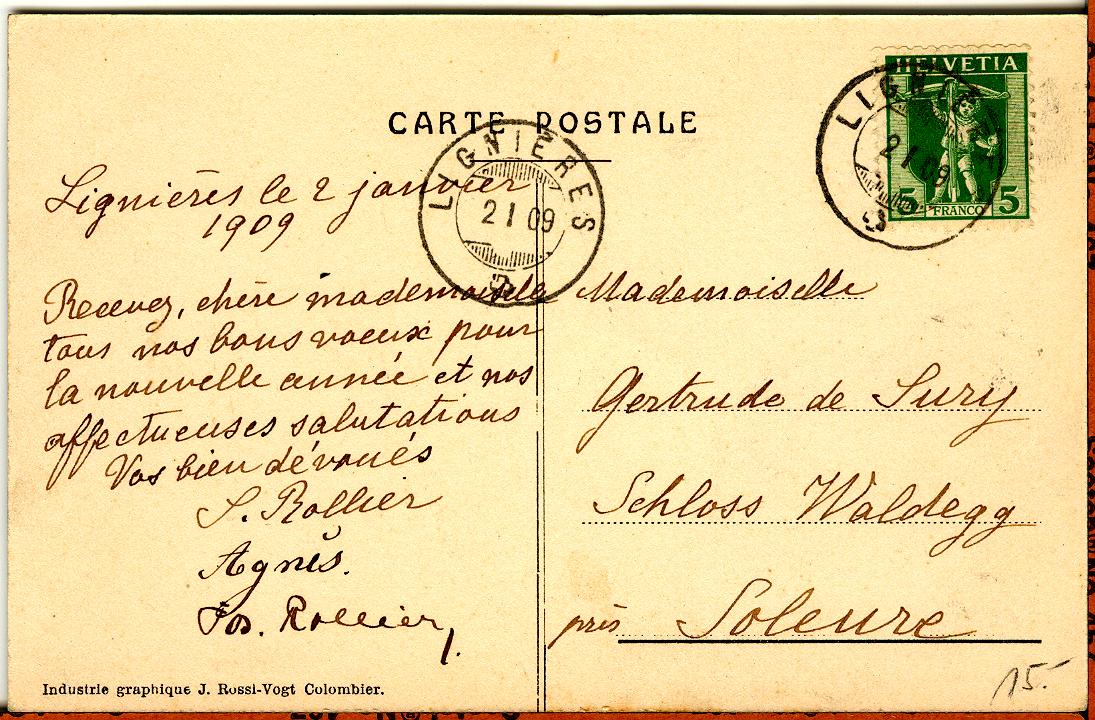 CARTE POSTALE
HELVETIA
FRANCO
5 5
LIGNIÈRES
2 I 09
LIGNIÈRES
2 I 09
Lignières le 2 janvier
1909
Recevez, chère mademoiselle
tous nos bons voeux pour
la nouvelle année et nos
affectueuses salutations
Vos bien dévoués
S. Rollier
Agnès.
Jos. Rollier,
Mademoiselle
Gertrude de Sury
Schloss Waldegg
près Soleure
Industrie graphique J. Rossi-Vogt Colombier.
15.-